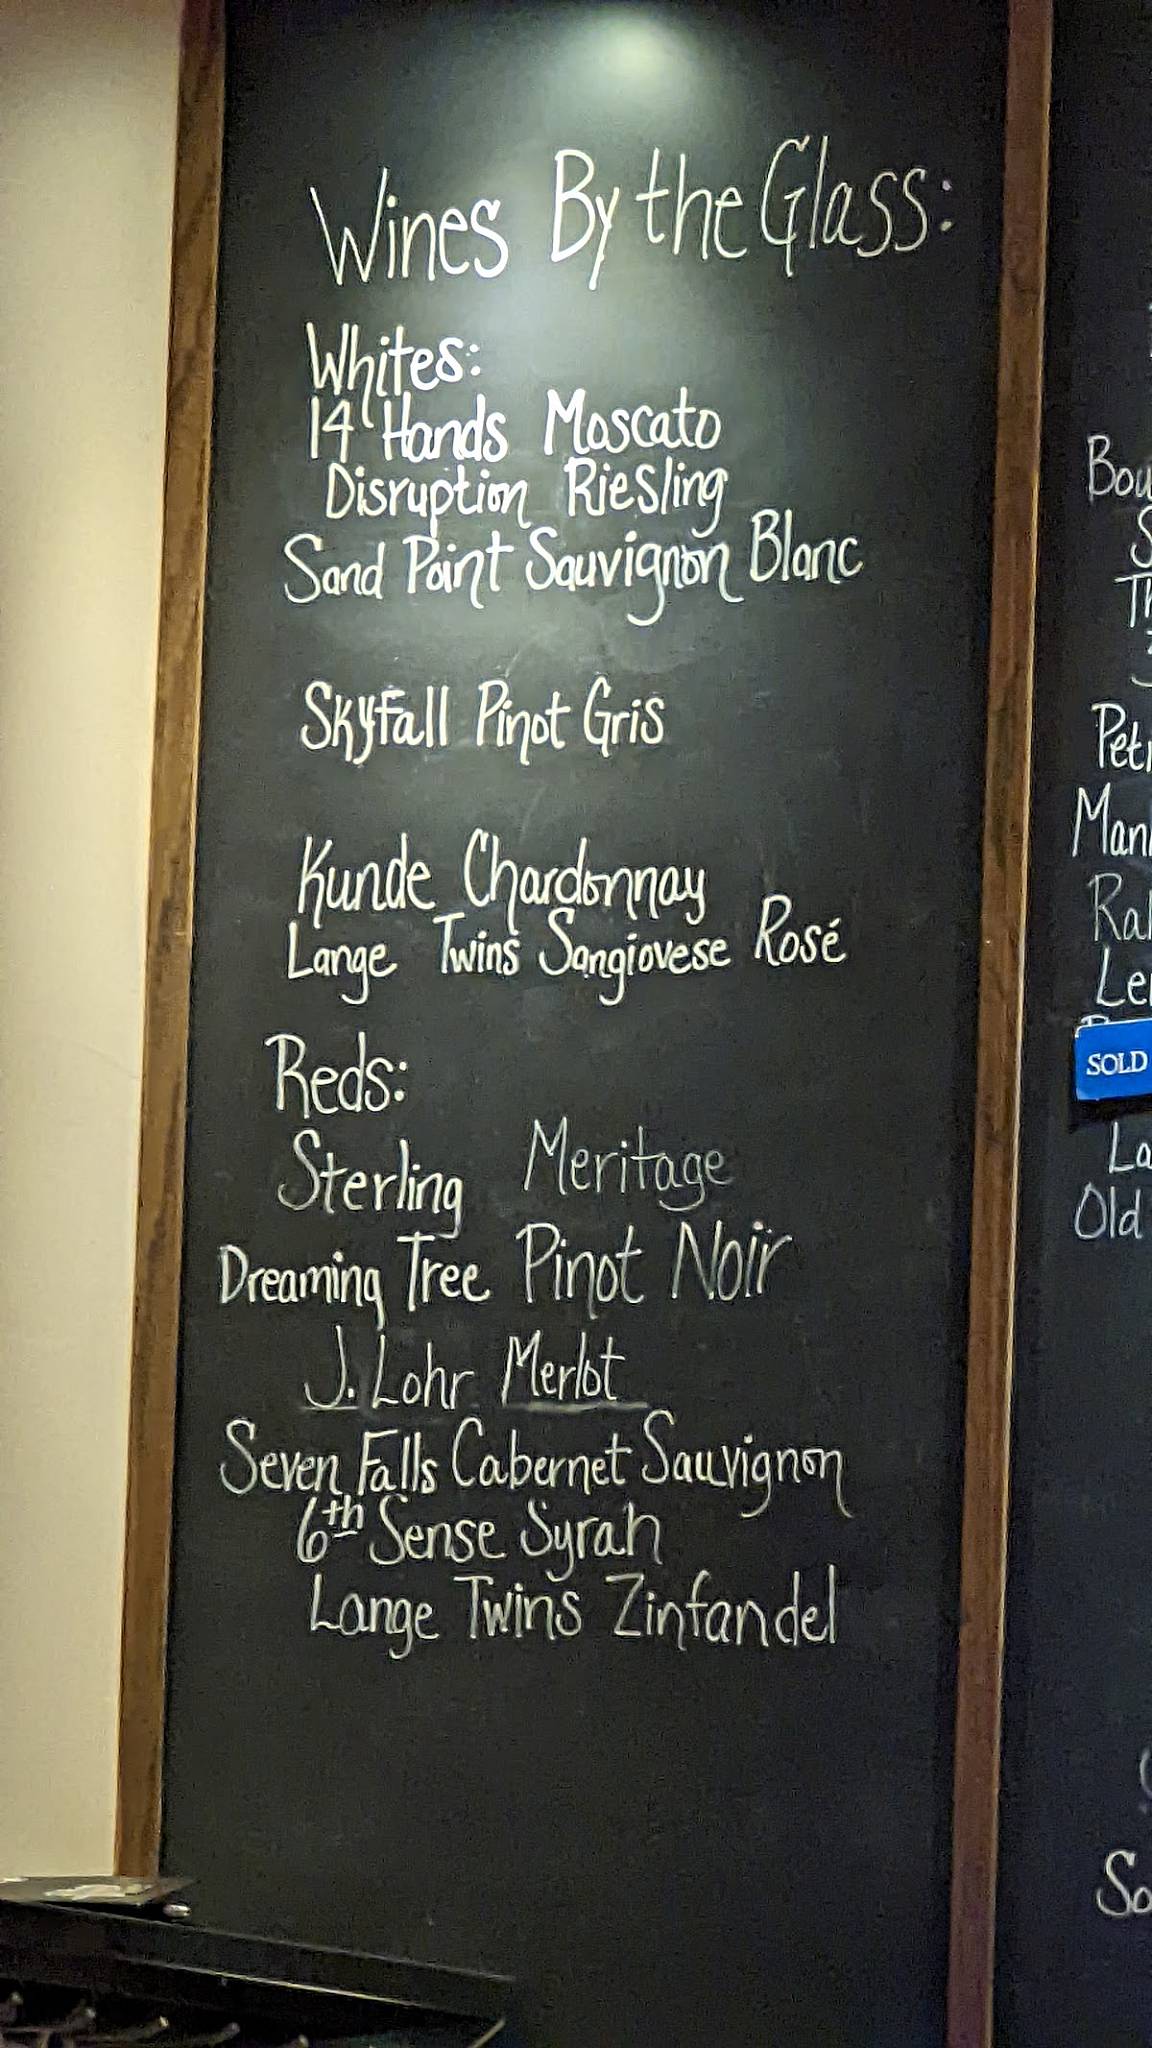 Wines By the Glass:
Whites:
14 Hands Moscato
Disruption Riesling
Sand Point Sauvignon Blanc
Skyfall Pinot Gris
Kunde Chardonnay
Lange Twins Sangiovese Rosé
Reds:
Sterling Meritage
Dreaming Tree Pinot Noir
J. Lohr Merlot
Seven Falls Cabernet Sauvignon
6th Sense Syrah
Lange Twins Zinfandel
SOLD
Old